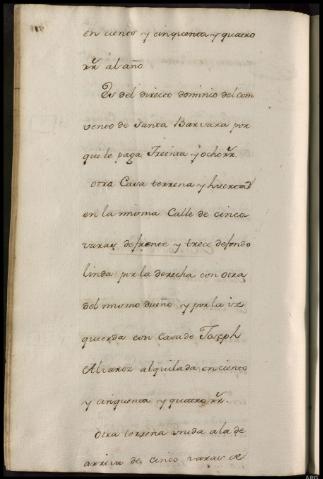 en ciento y cinquenta y quatro
rr.s al año
Es del directo dominio del com
vento de Santa Barvara por
que le paga Treinta y ocho rr.s
otra Casa terrena y huerta
en la misma Calle de cinco
varas de frente y trece de fondo
linda por la derecha con otra
del mismo dueño y por la iz
quierda con Casa de Joseph
Alvarez alquilada en ciento
y cinquenta y quatro rr.s
Otra terreña unida a la de
arriva de cinco varas de